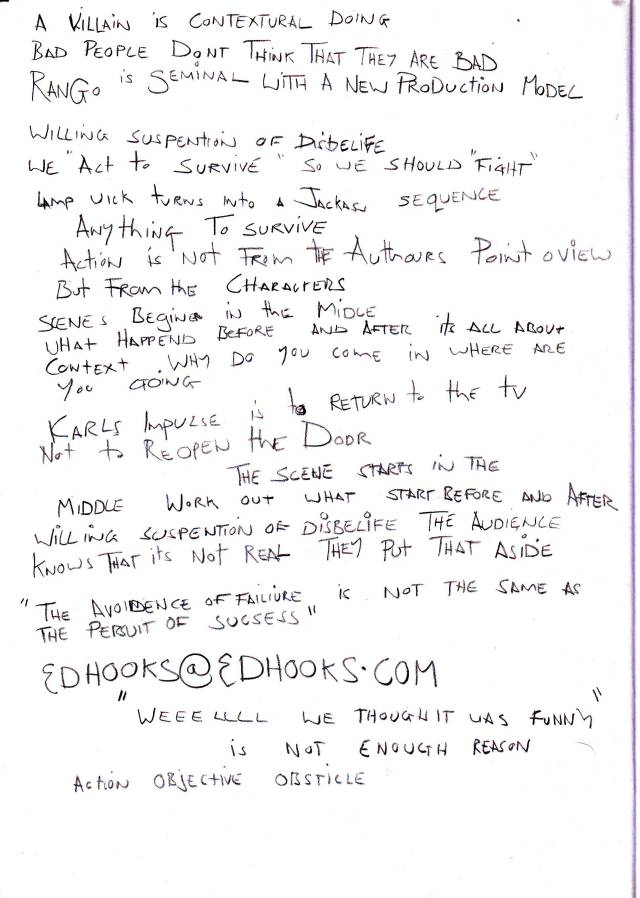 A VILLAIN IS CONTEXTURAL DOING
BAD PEOPLE DONT THINK THAT THEY ARE BAD
RANGO is SEMINAL WITH A NEW PRODUCTION MODEL
WILLING SUSPENTION OF DISBELIFE
WE "ACT to SURVIVE" SO WE SHOULD "FIGHT"
LAMP WICK TURNS INTO A JACKASS SEQUENCE
ANYTHING TO SURVIVE
ACTION is NOT FROM THE AUTHOURS POINT OVIEW
BUT FROM the CHARACTERS
SCENES BEGING in the MIDLE
WHAT HAPPEND BEFORE AND AFTER its ALL ABOUT
CONTEXT WHY DO YOU COME IN WHERE ARE
YOU GOING
KARLS IMPULSE is to RETURN to the tv
Not to REOPEN the DOOR
THE SCENE STARTS IN THE
MIDDLE WORK OUT WHAT START BEFORE AND AFTER
WILLING SUSPENTION OF DISBELIFE THE AUDIENCE
KNOWS THAT its NOT REAL THEY PUT THAT ASIDE
"THE AVOIDENCE OF FAILIURE IS NOT THE SAME AS
THE PERSUIT OF SUCSESS"
EDHOOKS@EDHOOKS.COM
"WEEELLLL WE THOUGHT IT WAS FUNNY"
is NOT ENOUGH REASON
ACTION OBJECTIVE OBSTICLE